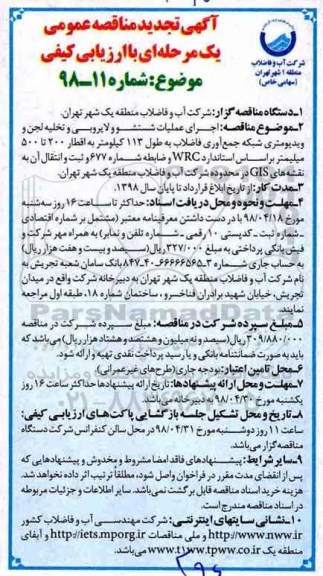 آگهی تجدید مناقصه عمومی
یک مرحله‌ای با ارزیابی کیفی
موضوع: شماره ۱۱-۹۸
شرکت آب و فاضلاب
منطقه ۱ شهر تهران
(سهامی خاص)
۱-دستگاه مناقصه گزار: شرکت آب و فاضلاب منطقه یک شهر تهران.
۲-موضوع مناقصه: اجرای عملیات شستشو و لایروبی و تخلیه لجن و
ویدیومتری شبکه جمع‌آوری فاضلاب به طول ۱۱۳ کیلومتر به اقطار ۲۰۰ تا ۵۰۰
میلیمتر براساس استاندارد WRC و ضابطه شماره ۶۷۷ و ثبت و انتقال آن به
نقشه‌های GIS در محدوده شرکت آب و فاضلاب منطقه یک شهر تهران.
۳-مدت کار: از تاریخ ابلاغ قرارداد تا پایان سال ۱۳۹۸.
۴-مهلت و نحوه و محل دریافت اسناد: حداکثر تا ساعت ۱۶ روز سه‌شنبه
مورخ ۹۸/۰۴/۱۸ با در دست داشتن معرفینامه معتبر (مشتمل بر شماره اقتصادی
ـ شماره ثبت ـ کدپستی ۱۰ رقمی ـ شماره تلفن و نمابر) به همراه مهر شرکت و
فیش بانکی پرداختی به مبلغ ۳۲۷/۰۰۰ ریال (سیصد و بیست و هفت هزار ریال)
به حساب جاری شماره ۳-۶۶۶۶۶۵۶۵-۴۰-۸۴۷ بانک سامان شعبه تجریش به
نام شرکت آب و فاضلاب منطقه یک شهر تهران به دبیرخانه شرکت واقع در میدان
تجریش، خیابان شهید برادران فناخسرو، ساختمان شماره ۱۸، طبقه اول مراجعه
نمایند.
۵-مبلغ سپرده شرکت در مناقصه: مبلغ سپرده شرکت در مناقصه
۳۰۹/۸۸۰/۰۰۰ ریال (سیصد و نه میلیون و هشتصد و هشتاد هزار ریال) می‌باشد که
باید به صورت ضمانتنامه بانکی و یا رسید پرداخت نقدی تهیه و ارائه شود.
۶-محل تامین اعتبار: بودجه جاری (طرح‌های غیرعمرانی)
۷-مهلت و محل ارائه پیشنهادها: تاریخ ارائه پیشنهادها حداکثر ساعت ۱۶ روز
یکشنبه مورخ ۹۸/۰۴/۳۰ به دبیرخانه می‌باشد.
۸-تاریخ و محل تشکیل جلسه بازگشایی پاکت‌های ارزیابی کیفی:
ساعت ۱۱ روز دوشنبه مورخ ۹۸/۰۴/۳۱ در محل سالن کنفرانس شرکت دستگاه
مناقصه گزار می‌باشد.
۹-سایر شرایط: پیشنهادهای فاقد امضا مشروط و مخدوش و پیشنهادهایی که
پس از انقضای مدت مقرر در فراخوان واصل شود، مطلقاً ترتیب اثر داده نخواهد شد.
هزینه خرید اسناد مناقصه قابل برگشت نمی‌باشد. سایر اطلاعات و جزئیات مربوطه
در اسناد مناقصه مندرج است.
۱۰-نشانی سایتهای اینترنتی: شرکت مهندسی آب و فاضلاب کشور
http://www.nww.ir و ملی مناقصات http://iets.mporg.ir و آبفای
منطقه یک www.t1ww.tpww.co.ir می‌باشد.